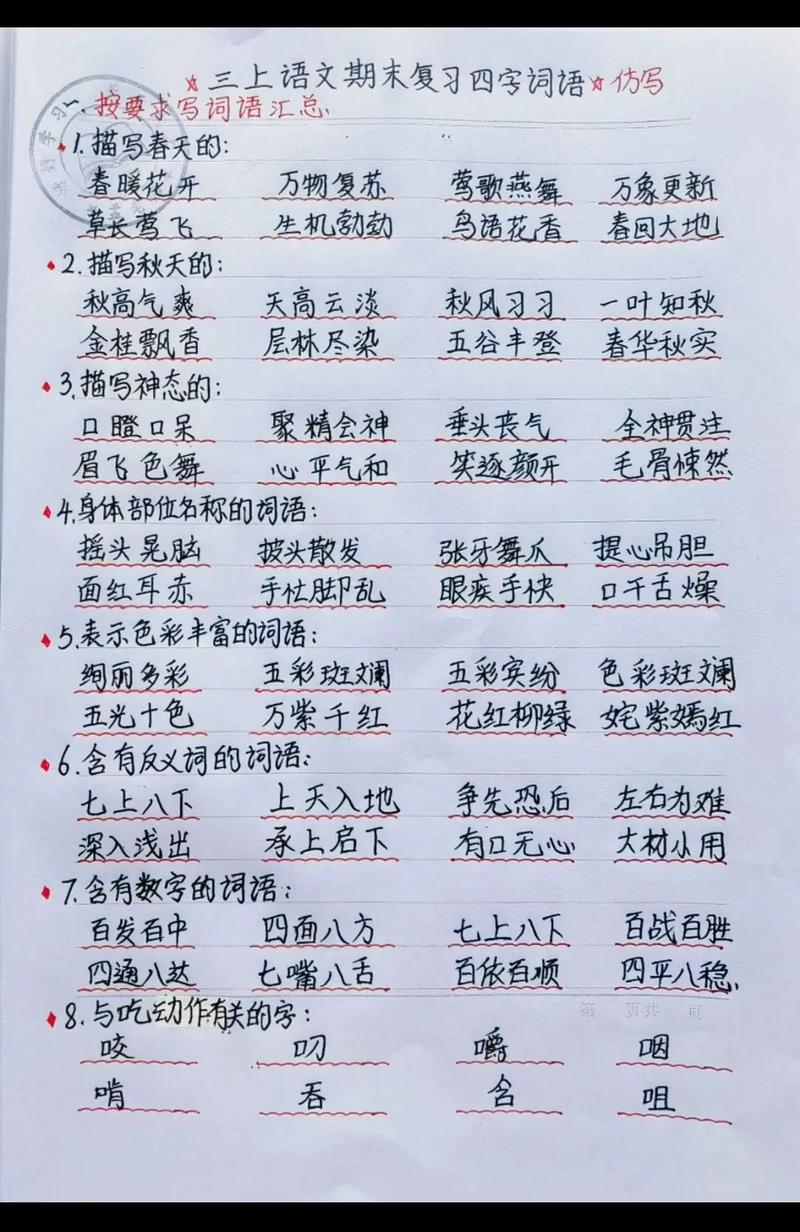 ☆三上语文期末复习四字词语☆仿写
一、按要求写词语汇总、
1.描写春天的:
春暖花开 万物复苏 莺歌燕舞 万象更新
草长莺飞 生机勃勃 鸟语花香 春回大地
2.描写秋天的:
秋高气爽 天高云淡 秋风习习 一叶知秋
金桂飘香 层林尽染 五谷丰登 春华秋实
3.描写神态的:
口瞪口呆 聚精会神 垂头丧气 全神贯注
眉飞色舞 心平气和 笑逐颜开 毛骨悚然
4.身体部位名称的词语:
摇头晃脑 披头散发 张牙舞爪 提心吊胆
面红耳赤 手忙脚乱 眼疾手快 口干舌燥
5.表示色彩丰富的词语:
绚丽多彩 五彩斑斓 五彩宾纷 色彩斑斓
五光十色 万紫千红 花红柳绿 姹紫嫣红
6.含有反义词的词语:
七上八下 上天入地 争先恐后 左右为难
深入浅出 承上启下 有口无心 大材小用
7.含有数字的词语:
百发百中 四面八方 七上八下 百战百胜
四通八达 七嘴八舌 百依百顺 四平八稳、
第 页共 页
8.与吃动作有关的字:
咬 叨 嚼 咽
啃 吞 含 咀